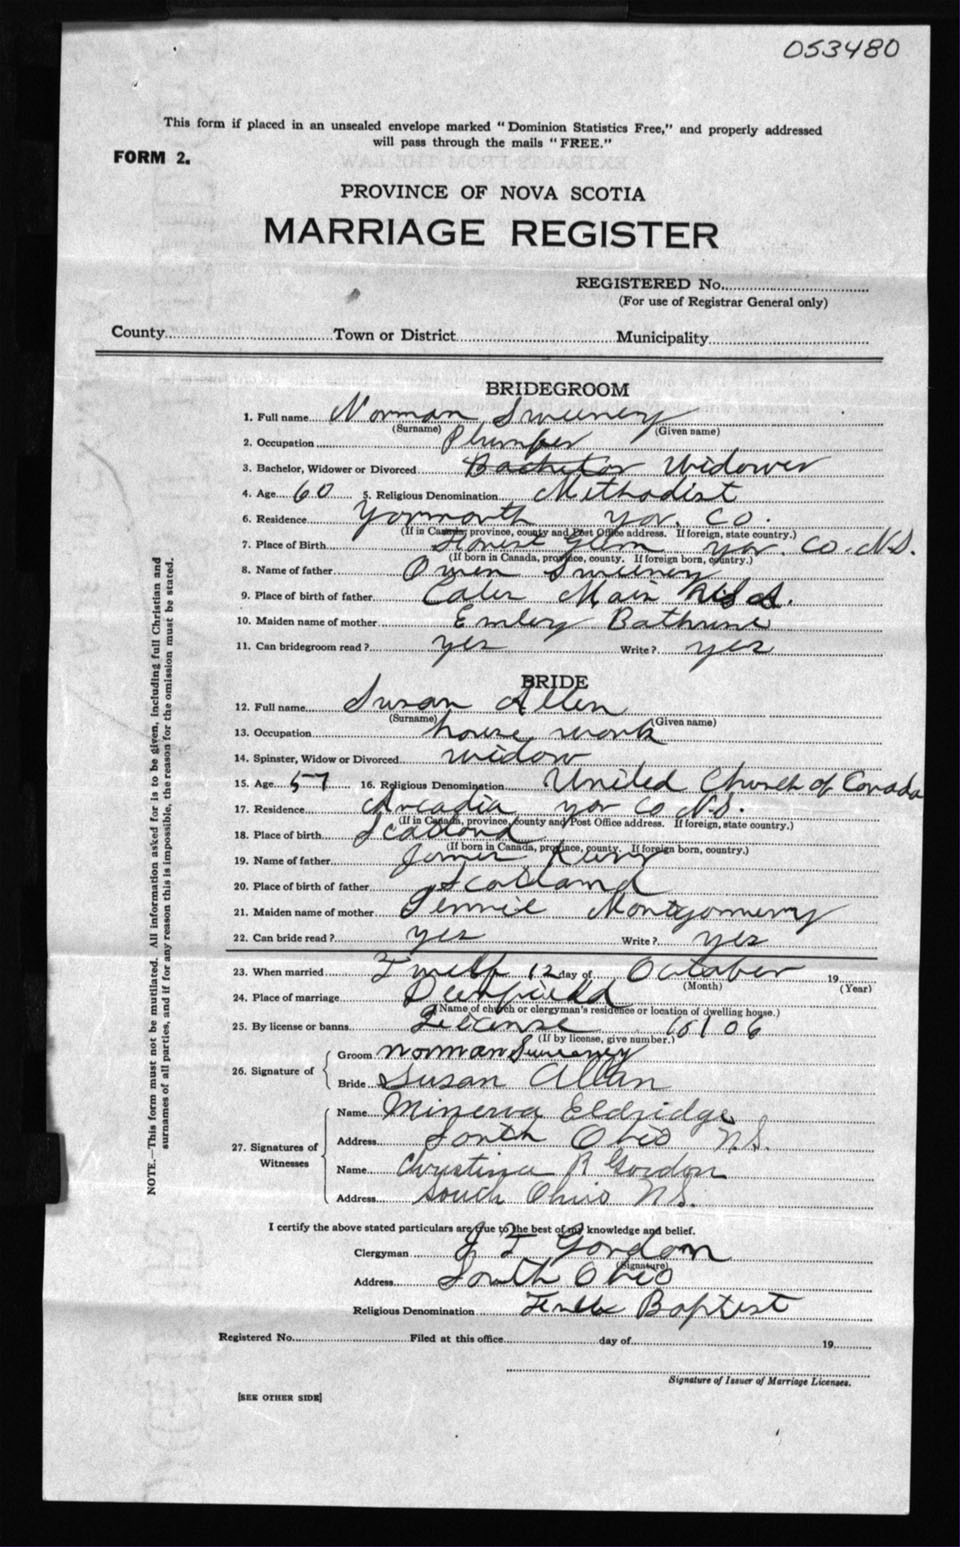 053480
This form if placed in an unsealed envelope marked "Dominion Statistics Free," and properly addressed
will pass through the mails "FREE."
FORM 2.
PROVINCE OF NOVA SCOTIA
MARRIAGE REGISTER
REGISTERED No.
(For use of Registrar General only)
County Town or District Municipality
BRIDEGROOM
1. Full name Norman Sweeney
(Surname) (Given name)
2. Occupation Plumber
3. Bachelor, Widower or Divorced Bachelor Widower
4. Age 60 5. Religious Denomination Methodist
6. Residence Yarmouth Yar. Co.
(If in Canada, province, county and Post Office address. If foreign, state country.)
7. Place of Birth Glen Yar. Co. N.S.
(If born in Canada, province, county. If foreign born, country.)
8. Name of father Owen Sweeney
9. Place of birth of father Main
10. Maiden name of mother Emley
11. Can bridegroom read? yes Write? yes
BRIDE
12. Full name Susan Allen
(Surname) (Given name)
13. Occupation house work
14. Spinster, Widow or Divorced widow
15. Age 57 16. Religious Denomination United Church of Canada
17. Residence Arcadia Yar Co N.S.
(If in Canada, province, county and Post Office address. If foreign, state country.)
18. Place of birth Scotland
(If born in Canada, province, county. If foreign born, country.)
19. Name of father James
20. Place of birth of father Scotland
21. Maiden name of mother Jennie Montgomery
22. Can bride read? yes Write? yes
23. When married Twelf 12 day of October 19
(Month) (Year)
24. Place of marriage Deerfield
(Name of church or clergyman's residence or location of dwelling house.)
25. By license or banns License 16106
(If by license, give number.)
26. Signature of Groom Norman Sweeney
Bride Susan Allan
27. Signatures of Witnesses Name Minerva Eldridge
Address South Ohio N.S.
Name Christina R Gordon
Address South Ohio N.S.
I certify the above stated particulars are true to the best of my knowledge and belief.
Clergyman J T Gordon
(Signature)
Address South Ohio
Religious Denomination Baptist
Registered No. Filed at this office day of 19
Signature of Issuer of Marriage Licenses.
[SEE OTHER SIDE]
NOTE.—This form must not be mutilated. All information asked for is to be given, including full Christian and
surnames of all parties, and if for any reason this is impossible, the reason for the omission must be stated.